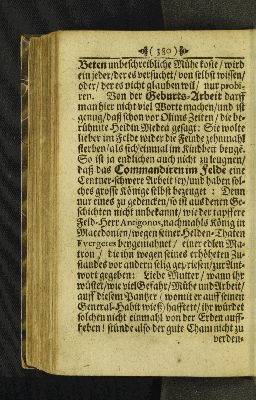 (380)
Beten unbeschreibliche Mühe koste / wird
ein jeder / der es versuchet / von selbst wissen /
oder / der es nicht glauben will / nur probi-
ren. Von der Geburts-Arbeit darff
man hier nicht viel Worte machen / und ist
genug / daß schon vor Olims Zeiten / die be-
rühmte Heidin Medea gesagt: Sie wolte
lieber im Felde wider die Feinde zehnmahl
sterben / als sich einmahl im Kindbett bergē.
So ist ja endlichen auch nicht zu leugnen /
daß das Commandiren im Felde eine
Centner-schwere Arbeit sey / und haben sol-
ches grosse Könige selbst bezeuget: Denn
nur eines zu gedencken / so ist aus denen Ge-
schichten nicht unbekannt / wie der tapffere
Feld-Herr Antigonus, nachmahls König in
Macedonien / wegen seiner Helden-Thaten
Evergetes beygenahmet / einer edlen Ma-
tron / die ihn wegen seines erhöheten Zu-
standes vor andern selig gepriesen / zur Ant-
wort gegeben: Liebe Mutter / wann ihr
wüstet / wie viel Gefahr / Mühe und Arbeit /
auff diesem Pantzer (womit er auff seinen
General-Habit wieß) hafftete / ihr würdet
solchen nicht einmahl von der Erden auff-
heben! stünde also der gute Cham nicht zu
verden-